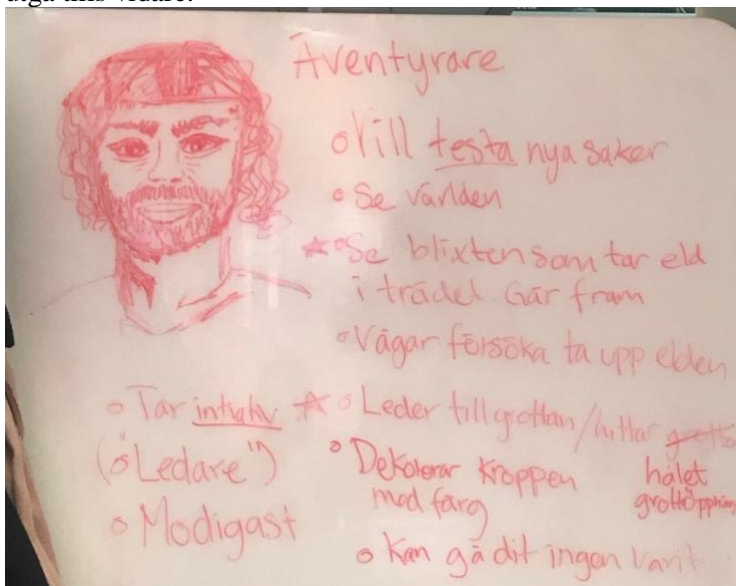 Äventyrare
o Vill testa nya saker
o Se världen
☆ o Se blixten som tar eld
i trädet. Går fram
o Vågar försöka ta upp elden
o Tar initiativ
("o Ledare")
o Modigast
☆ o Leder till grottan/hittar grotto
hålet
grottöppning
o Dekorerar kroppen
med färg
o Kan gå dit ingen varit